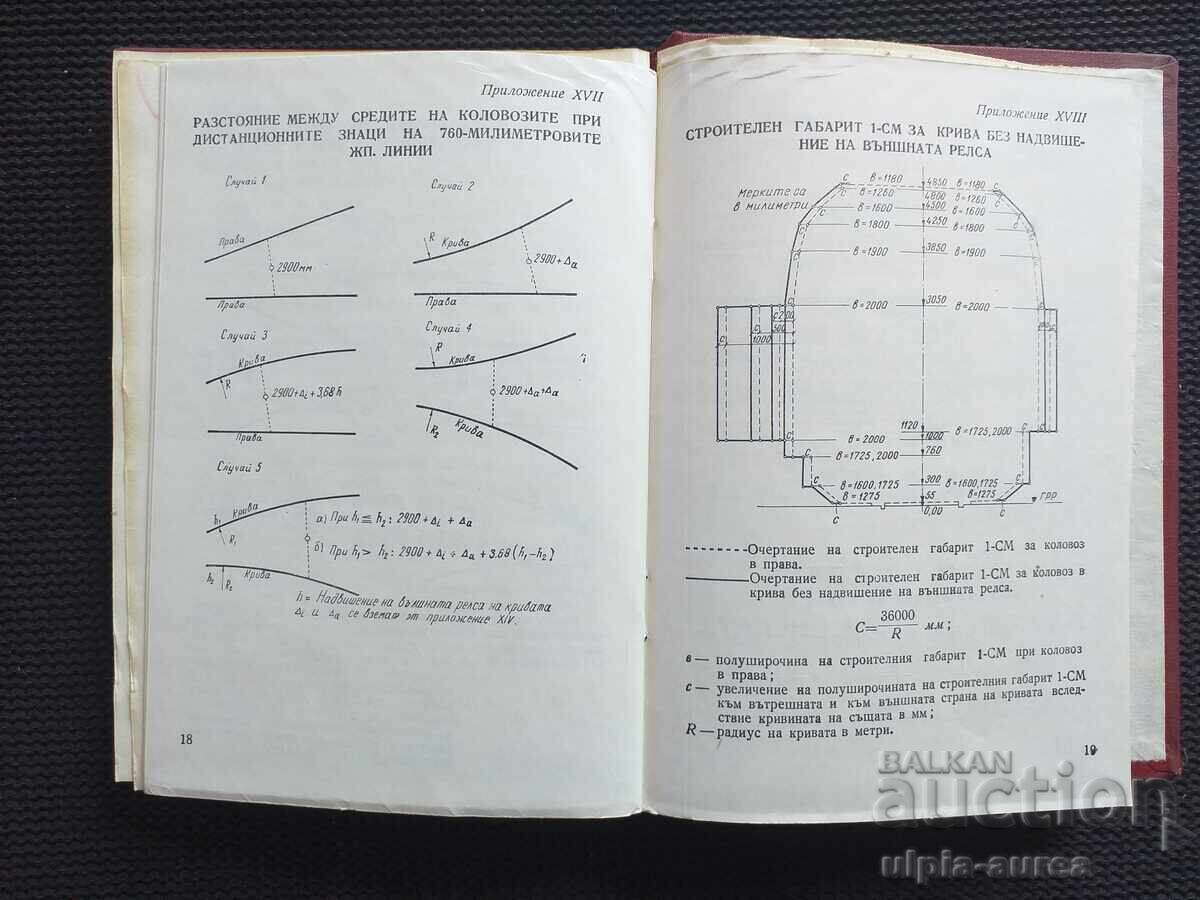 Приложение XVII
РАЗСТОЯНИЕ МЕЖДУ СРЕДИТЕ НА КОЛОВОЗИТЕ ПРИ
ДИСТАНЦИОННИТЕ ЗНАЦИ НА 760-МИЛИМЕТРОВИТЕ
ЖП. ЛИНИИ
Случай 1
Права
2900 мм
Права
Случай 2
R
Крива
2900 + Δa
Права
Случай 3
Крива
R
2900 + Δi + 3,68 h
Права
Случай 4
R
Крива
2900 + Δa + Δa
R2
Крива
Случай 5
h1
Крива
R1
а) При h1 ≦ h2 : 2900 + Δi + Δa
б) При h1 > h2 : 2900 + Δi + Δa + 3.68 (h1 - h2)
h2
R2
Крива
h = Надвишение на външната релса на кривата
Δi и Δa се вземат от приложение XIV.
18
Приложение XVIII
СТРОИТЕЛЕН ГАБАРИТ 1-СМ ЗА КРИВА БЕЗ НАДВИШЕ-
НИЕ НА ВЪНШНАТА РЕЛСА
мерките са
в милиметри
c в=1180 4850 в=1180 c
в=1260 4800 в=1260
в=1600 4500 в=1600
в=1800 4250 в=1800
в=1900 3850 в=1900
в=2000 3050 в=2000
1000
1120
в=2000 1000 в=1725, 2000
в=1725, 2000 760
в=1600, 1725 300 в=1600, 1725
в=1275 55 в=1275
0,00
грр
- - - - - - -Очертание на строителен габарит 1-СМ за коловоз
в права.
———Очертание на строителен габарит 1-СМ за коловоз в
крива без надвишение на външната релса.
C = 36000 / R мм ;
в — полуширочина на строителния габарит 1-СМ при коловоз
в права ;
c — увеличение на полуширочината на строителния габарит 1-СМ
към вътрешната и към външната страна на кривата вслед-
ствие кривината на същата в мм ;
R — радиус на кривата в метри.
19
BALKAN
auction
ulpia-aurea